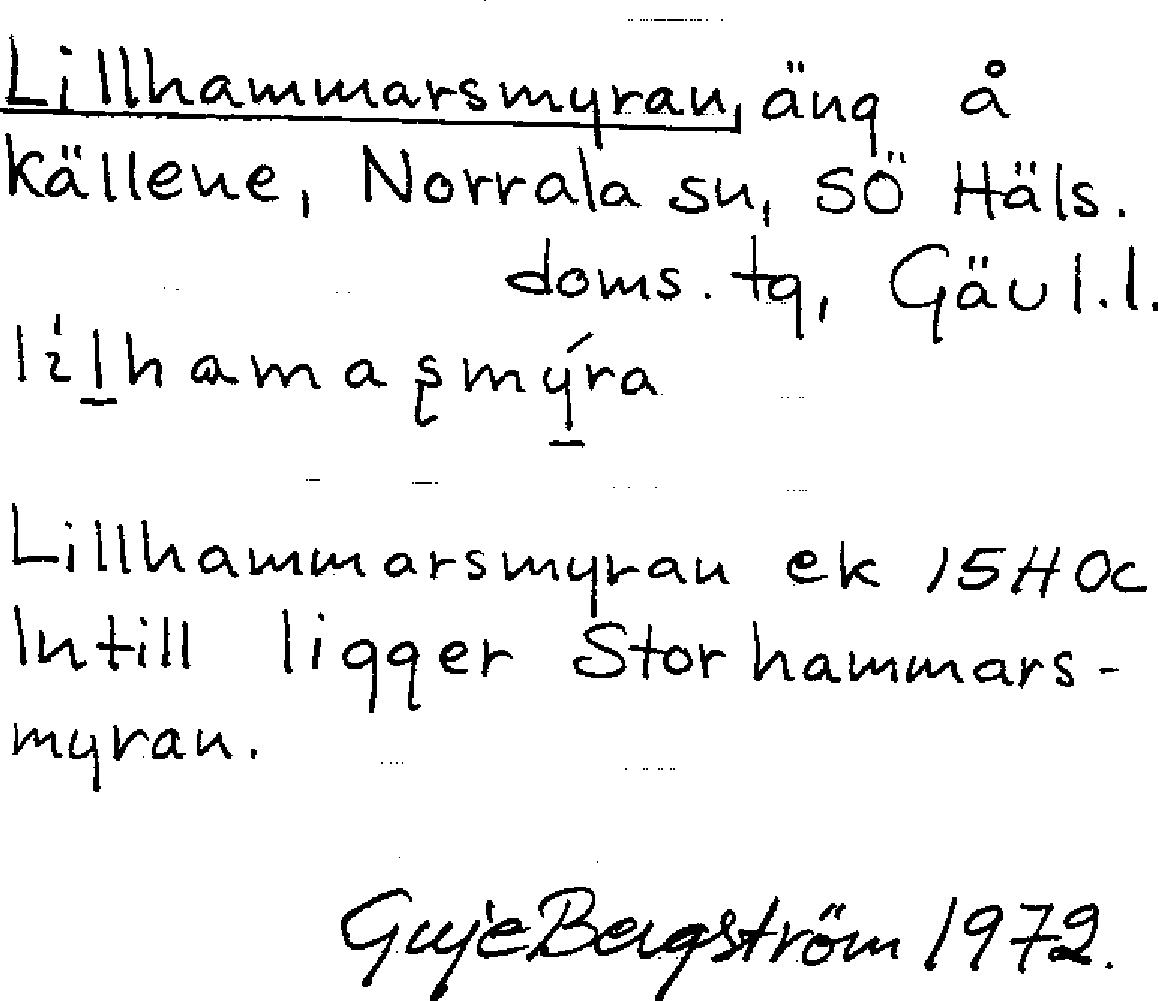 Lillhammarsmyran, äng å
Källene, Norrala sn, SÖ Häls.
doms. tg, Gävl.l.
lil̲hamaʂmý̲ra
Lillhammarsmyran ek 15H0c
Intill ligger Storhammars-
myran.
Guje Bergström 1972.